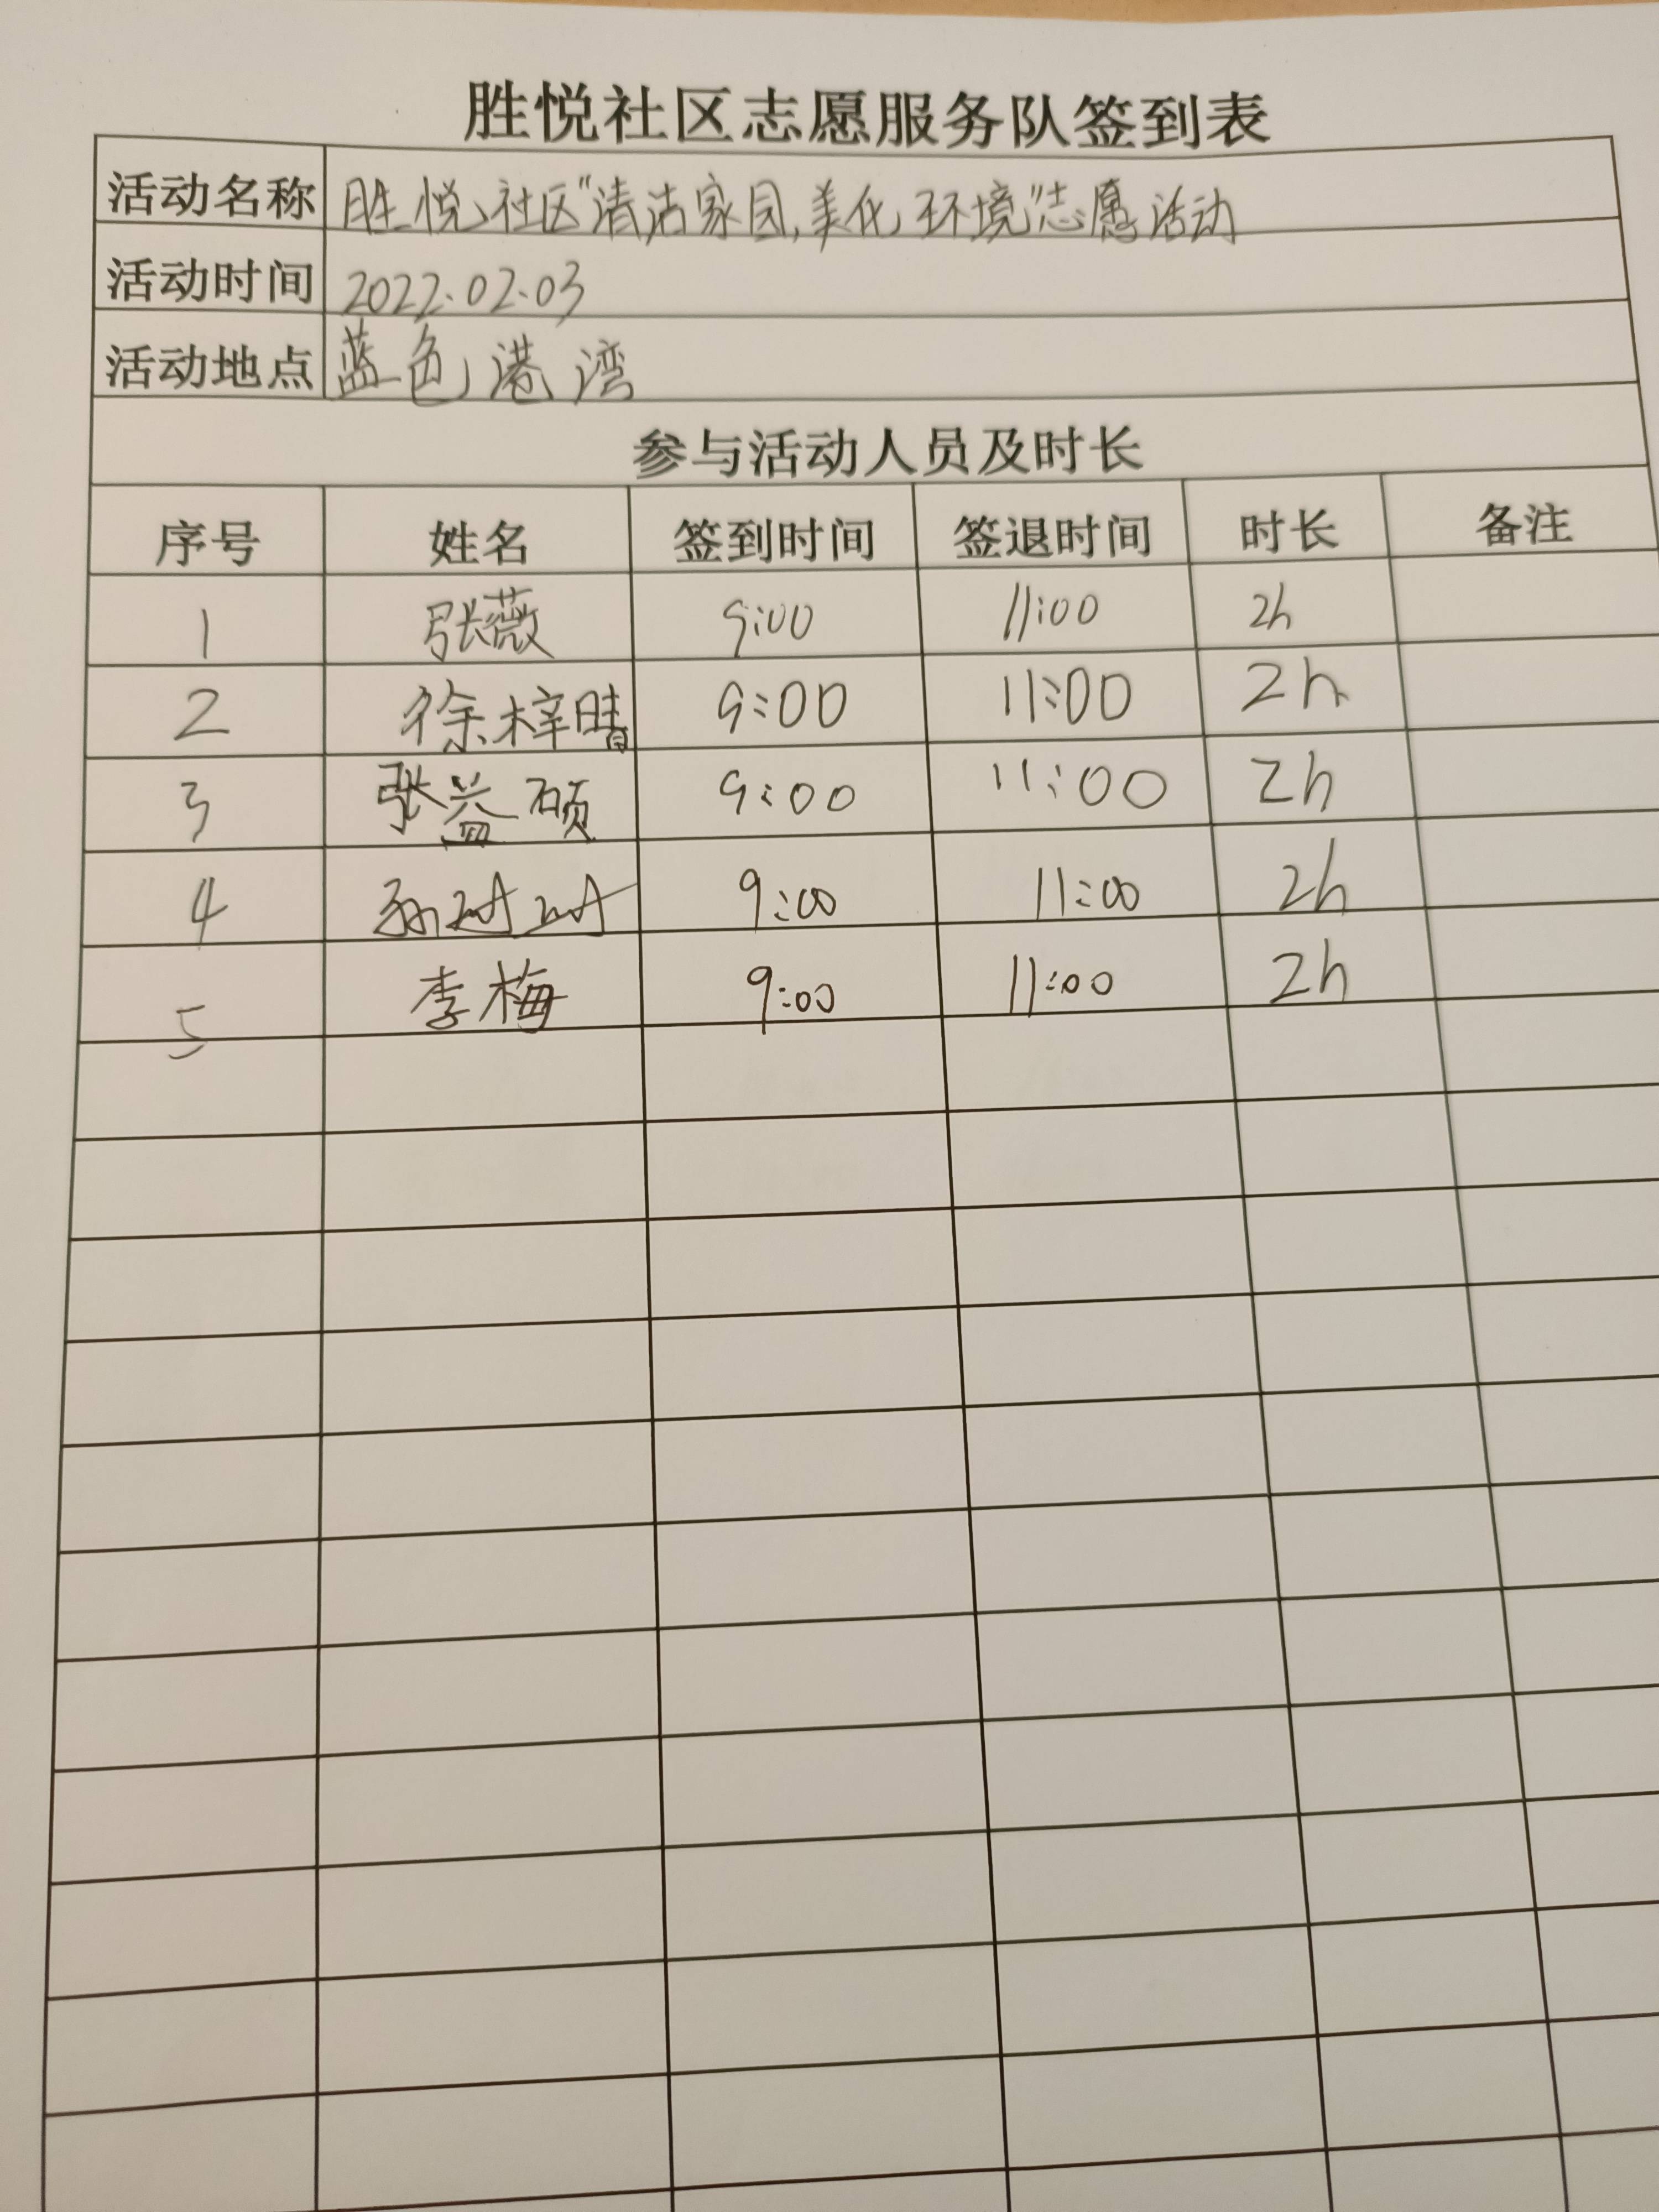 胜悦社区志愿服务队签到表
活动名称 胜悦社区"清洁家园,美化环境"志愿活动
活动时间 2022.02.03
活动地点 蓝色港湾
参与活动人员及时长
序号 姓名 签到时间 签退时间 时长 备注
1 张薇 9:00 11:00 2h
2 徐梓晴 9:00 11:00 2h
3 张益硕 9:00 11:00 2h
4 孙 9:00 11:00 2h
5 李梅 9:00 11:00 2h